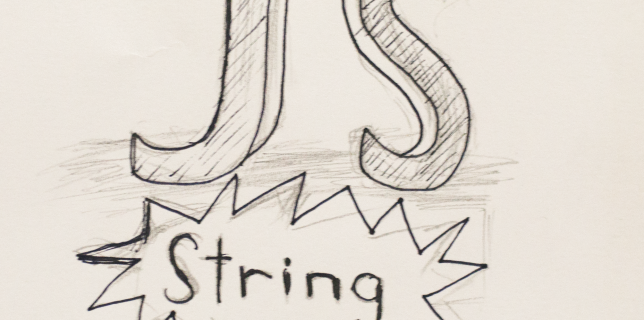 JS
String